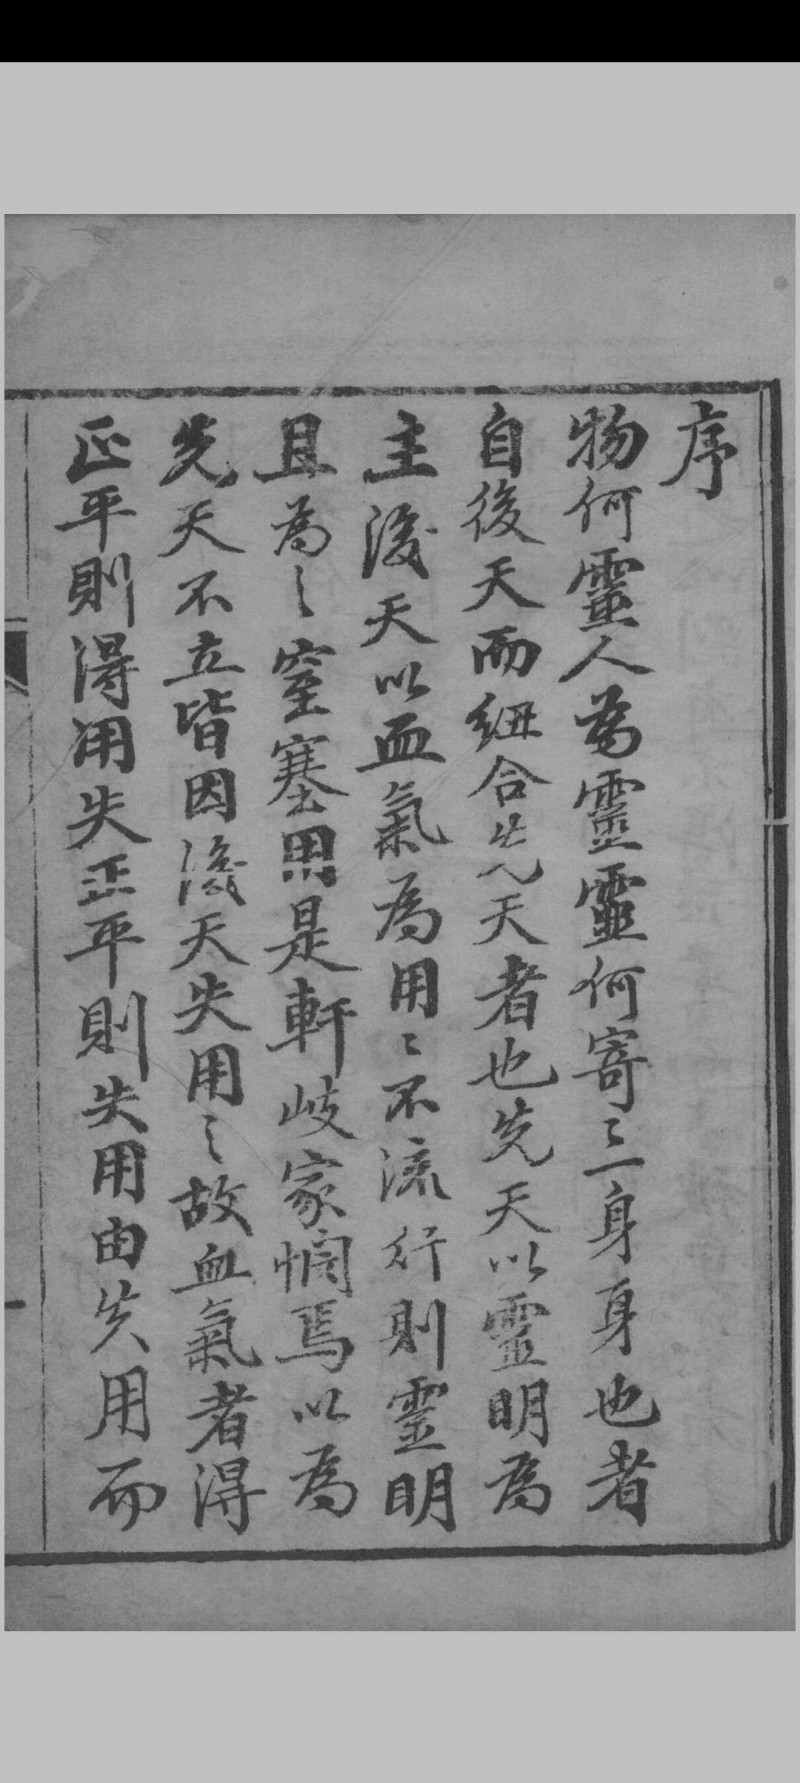 序
物何靈人為靈靈何寄〻身身也者
自後天而紐合先天者也先天以靈明為
主後天以血氣為用〻不流行則靈明
且為之窒塞用是軒岐家惘焉以為
先天不立皆因後天失用〻之故血氣者得
正平則得用失正平則失用由失用而